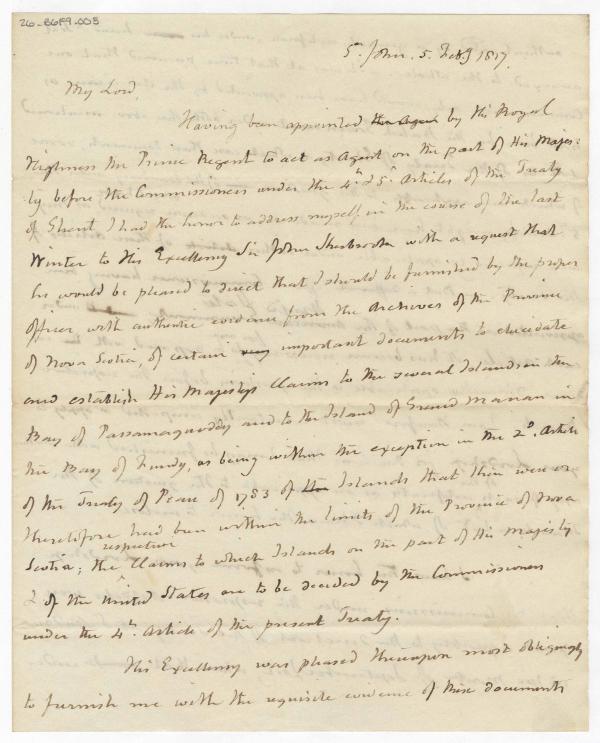 26-8689.003
St John. 5. Feby 1817.
My Lord,
Having been appointed the Agent by His Royal
Highness the Prince Regent to act as Agent on the part of His Majes-
ty before the Commissioners under the 4th & 5th Articles of the Treaty
of Ghent I had the honor to address myself in the course of the last
Winter to His Excellency Sir John Sherbrooke with a request that
he would be pleased to direct that I should be furnished by the proper
Officer with authentic evidence from the Archives of the Province
of Nova Scotia, of certain very important documents to elucidate
and establish His Majesty's Claims to the several Islands in the
Bay of Passamaquoddy and to the Island of Grand Manan in
the Bay of Fundy, as being within the exception in the 2d. Article
of the Treaty of Peace of 1783 of the Islands that then were or
theretofore had been within the limits of the Province of Nova
respective
Scotia; the Claims to which Islands on the part of His Majesty
& of the United States are to be decided by the Commissioners
under the 4th. Article of the present Treaty.
His Excellency was pleased thereupon most obligingly
to furnish me with the requisite evidence of these documents